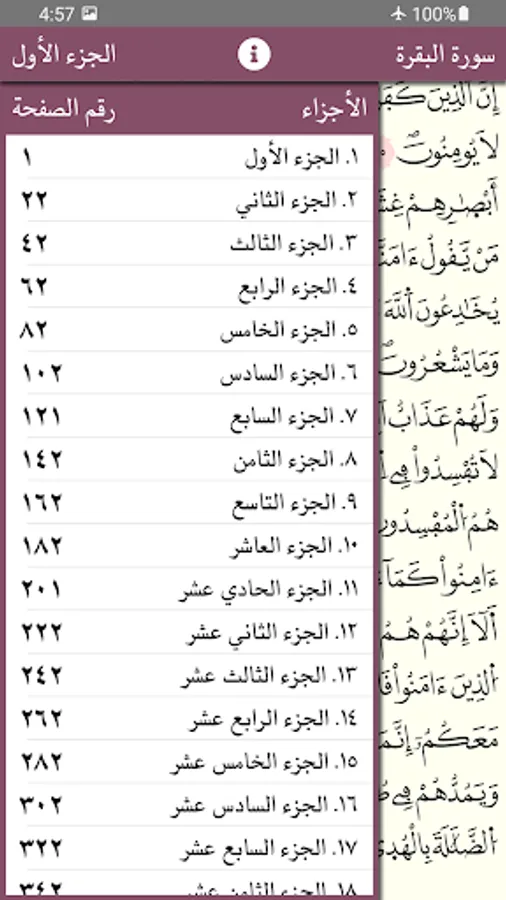 4:57 100%
سورة البقرة
الجزء الأول
الأجزاء رقم الصفحة
١. الجزء الأول ١
٢. الجزء الثاني ٢٢
٣. الجزء الثالث ٤٢
٤. الجزء الرابع ٦٢
٥. الجزء الخامس ٨٢
٦. الجزء السادس ١٠٢
٧. الجزء السابع ١٢١
٨. الجزء الثامن ١٤٢
٩. الجزء التاسع ١٦٢
١٠. الجزء العاشر ١٨٢
١١. الجزء الحادي عشر ٢٠١
١٢. الجزء الثاني عشر ٢٢٢
١٣. الجزء الثالث عشر ٢٤٢
١٤. الجزء الرابع عشر ٢٦٢
١٥. الجزء الخامس عشر ٢٨٢
١٦. الجزء السادس عشر ٣٠٢
١٧. الجزء السابع عشر ٣٢٢
١٨. الجزء الثامن عشر ٣٤٢
إِنَّ ألذِينَ
لَا يُومِنُونَ
أَبْصٰرِهِمْ
مَنْ يَّقُولُ ءَامَنَّا
يُخَٰدِعُونَ أَللَّهَ
وَمَا يَشْعُرُونَ
وَلَهُمْ عَذَابٌ
لَا تُفْسِدُوا۟ فِي
هُمُ الْمُفْسِدُونَ
ءَامِنُوا۟ كَمَآ
أَلَآ إِنَّهُمْ هُمُ
ألذِينَ ءَامَنُوا۟
مَعَكُمُۥٓ إِنَّمَا
وَيَمُدُّهُمْ فِي
الضَّلَٰلَةَ بِالْهُدَىٰ